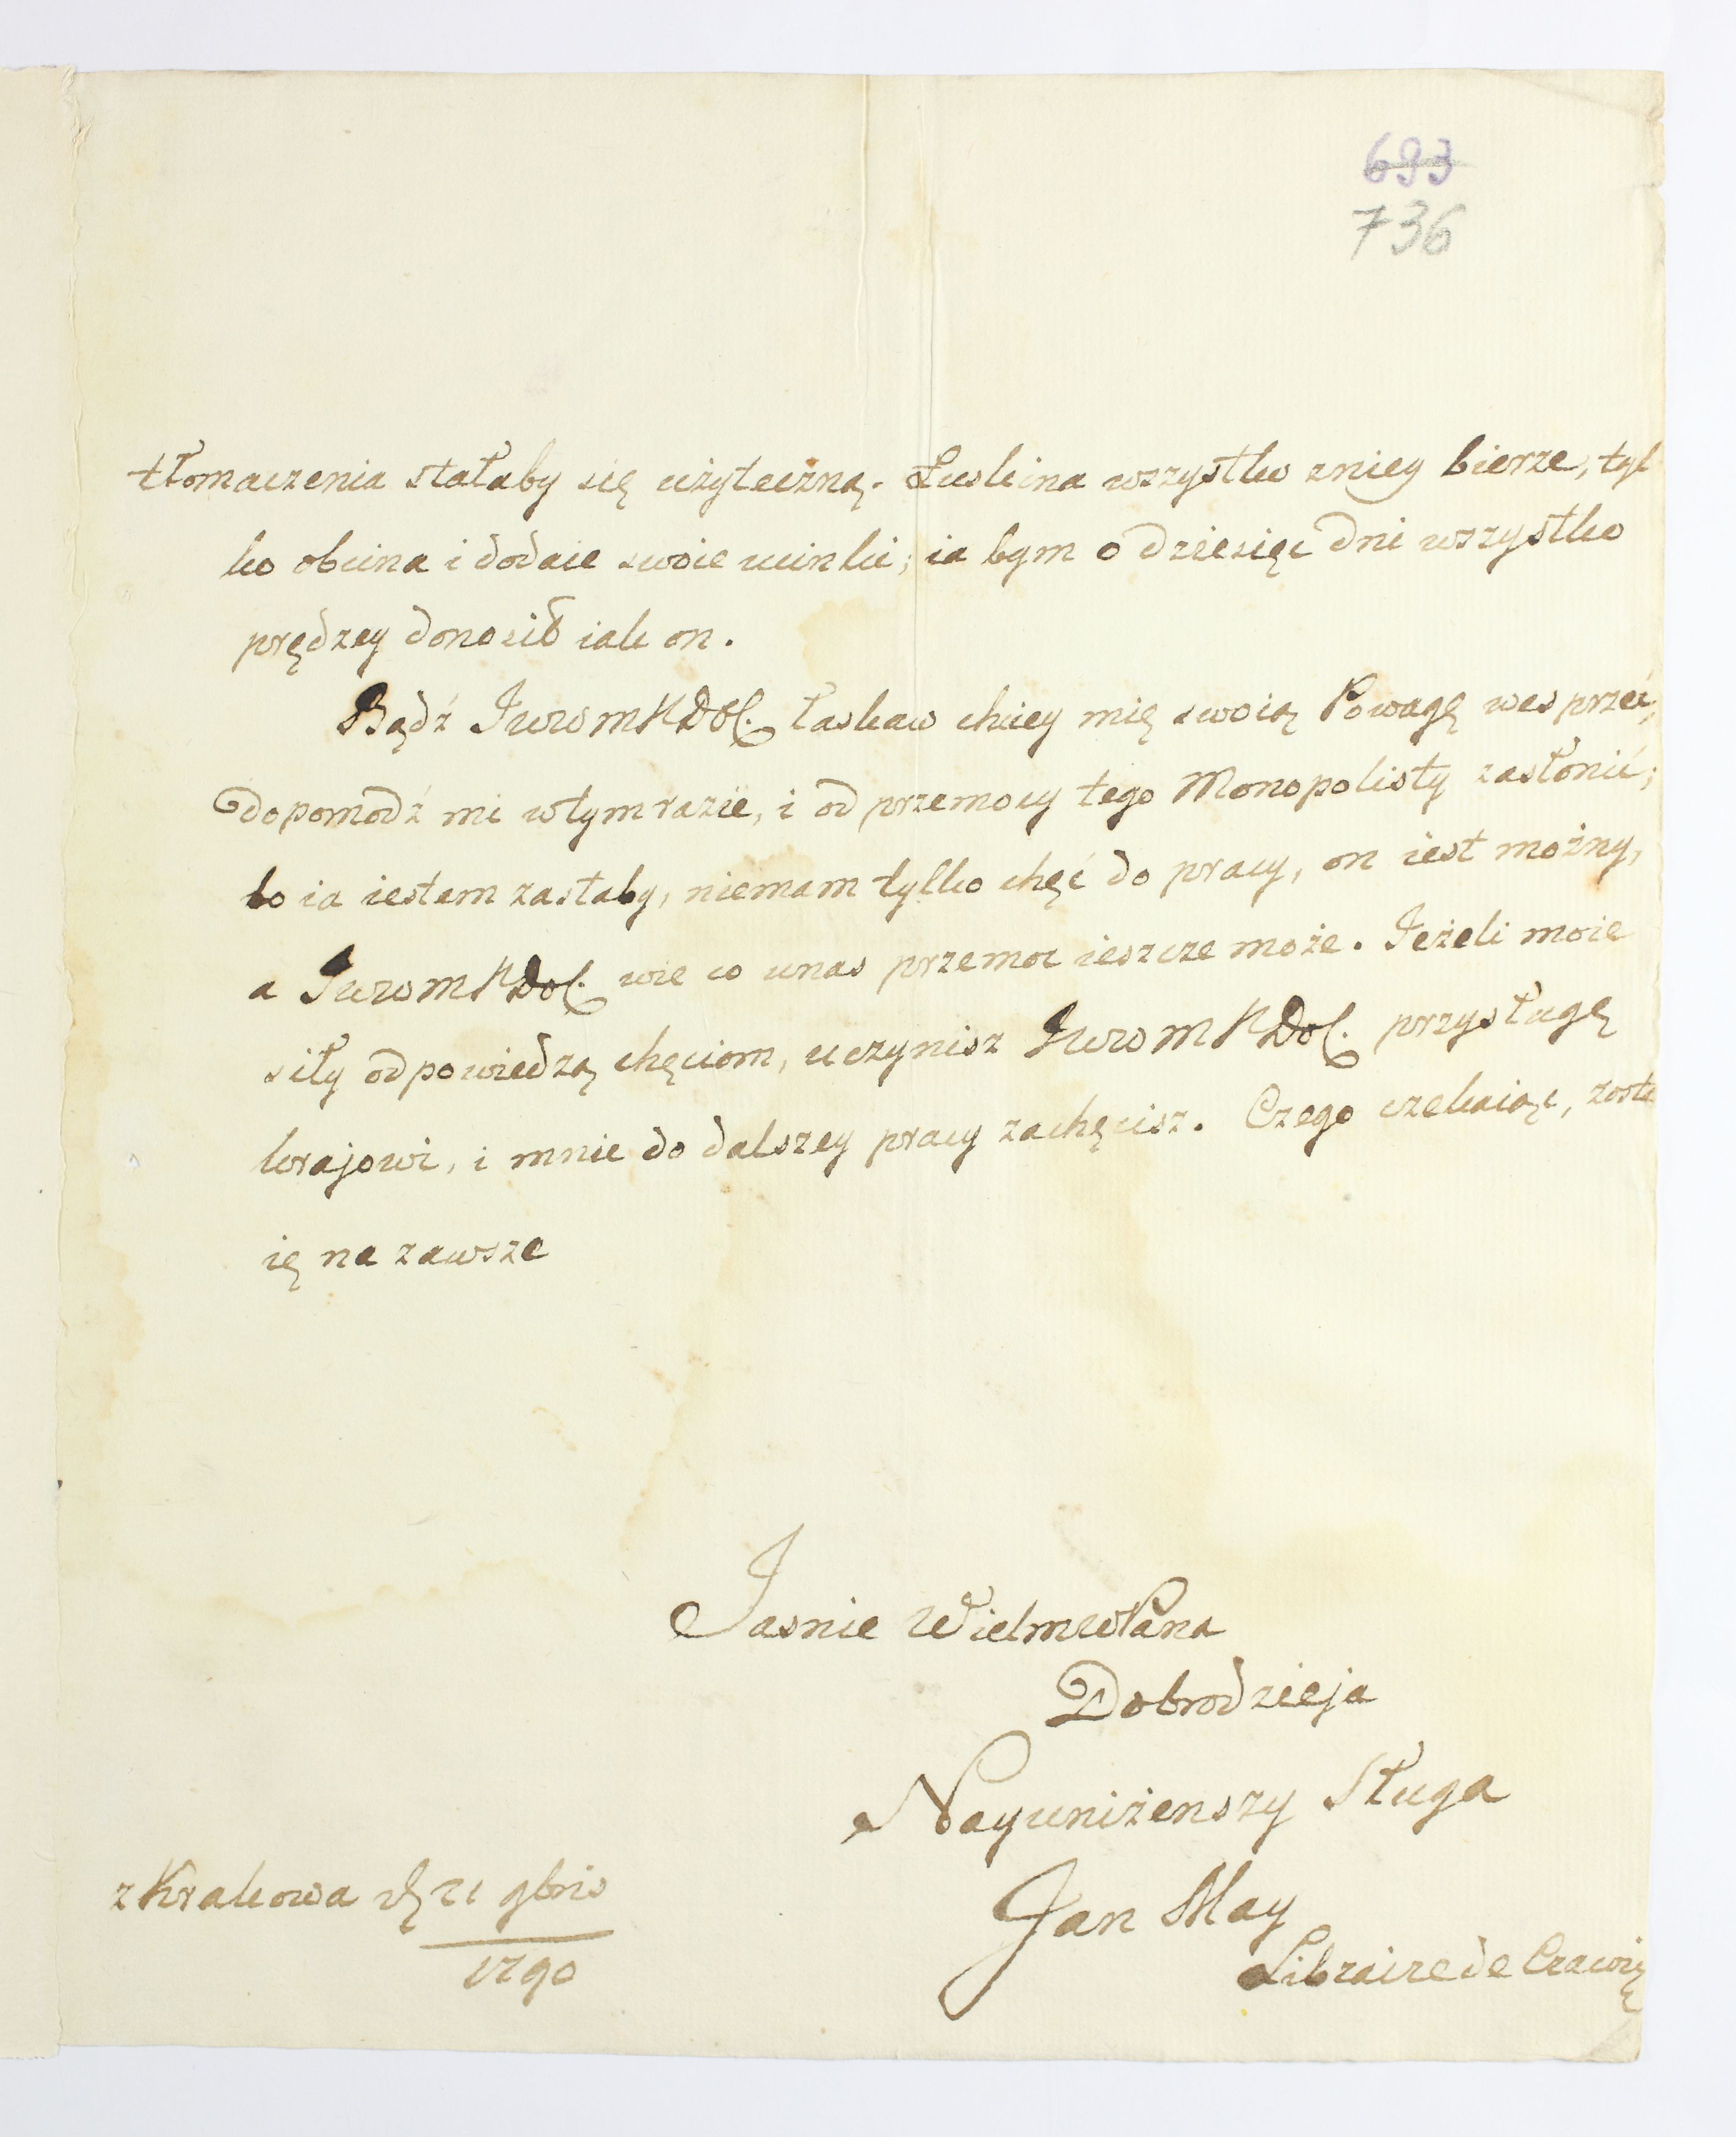 693
736
tłomaczenia stałaby się użyteczną. Łuskina wszystko zniey bierze, tyl
ko obcina i dodaie swoie ucinki; ia bym o dziesięć dni wszystko
prędzey donosił iak on.
Bądź JWWMPDob. łaskaw chciey mię swoią Powagą wesprzeć,
dopomodź mi wtym razie, i od przemocy tego Monopolisty zasłonić;
bo ia iestem zasłaby, niemam tylko chęć do pracy, on iest możny,
a JWWMPDob. wie co unas przemoc ieszcze może. Jeżeli moie
siły odpowiedzą chęciom, uczynisz JWWMPDob. przysługę
krajowi, i mnie do dalszey pracy zachęcisz. Czego czekaiąc, zosta
ię na zawsze
Jasnie WielmWPana
Dobrodzieja
Nayuniżenszy Sługa
Jan May
Libraire de Cracovie
z Krakowa 21 9bris
1790